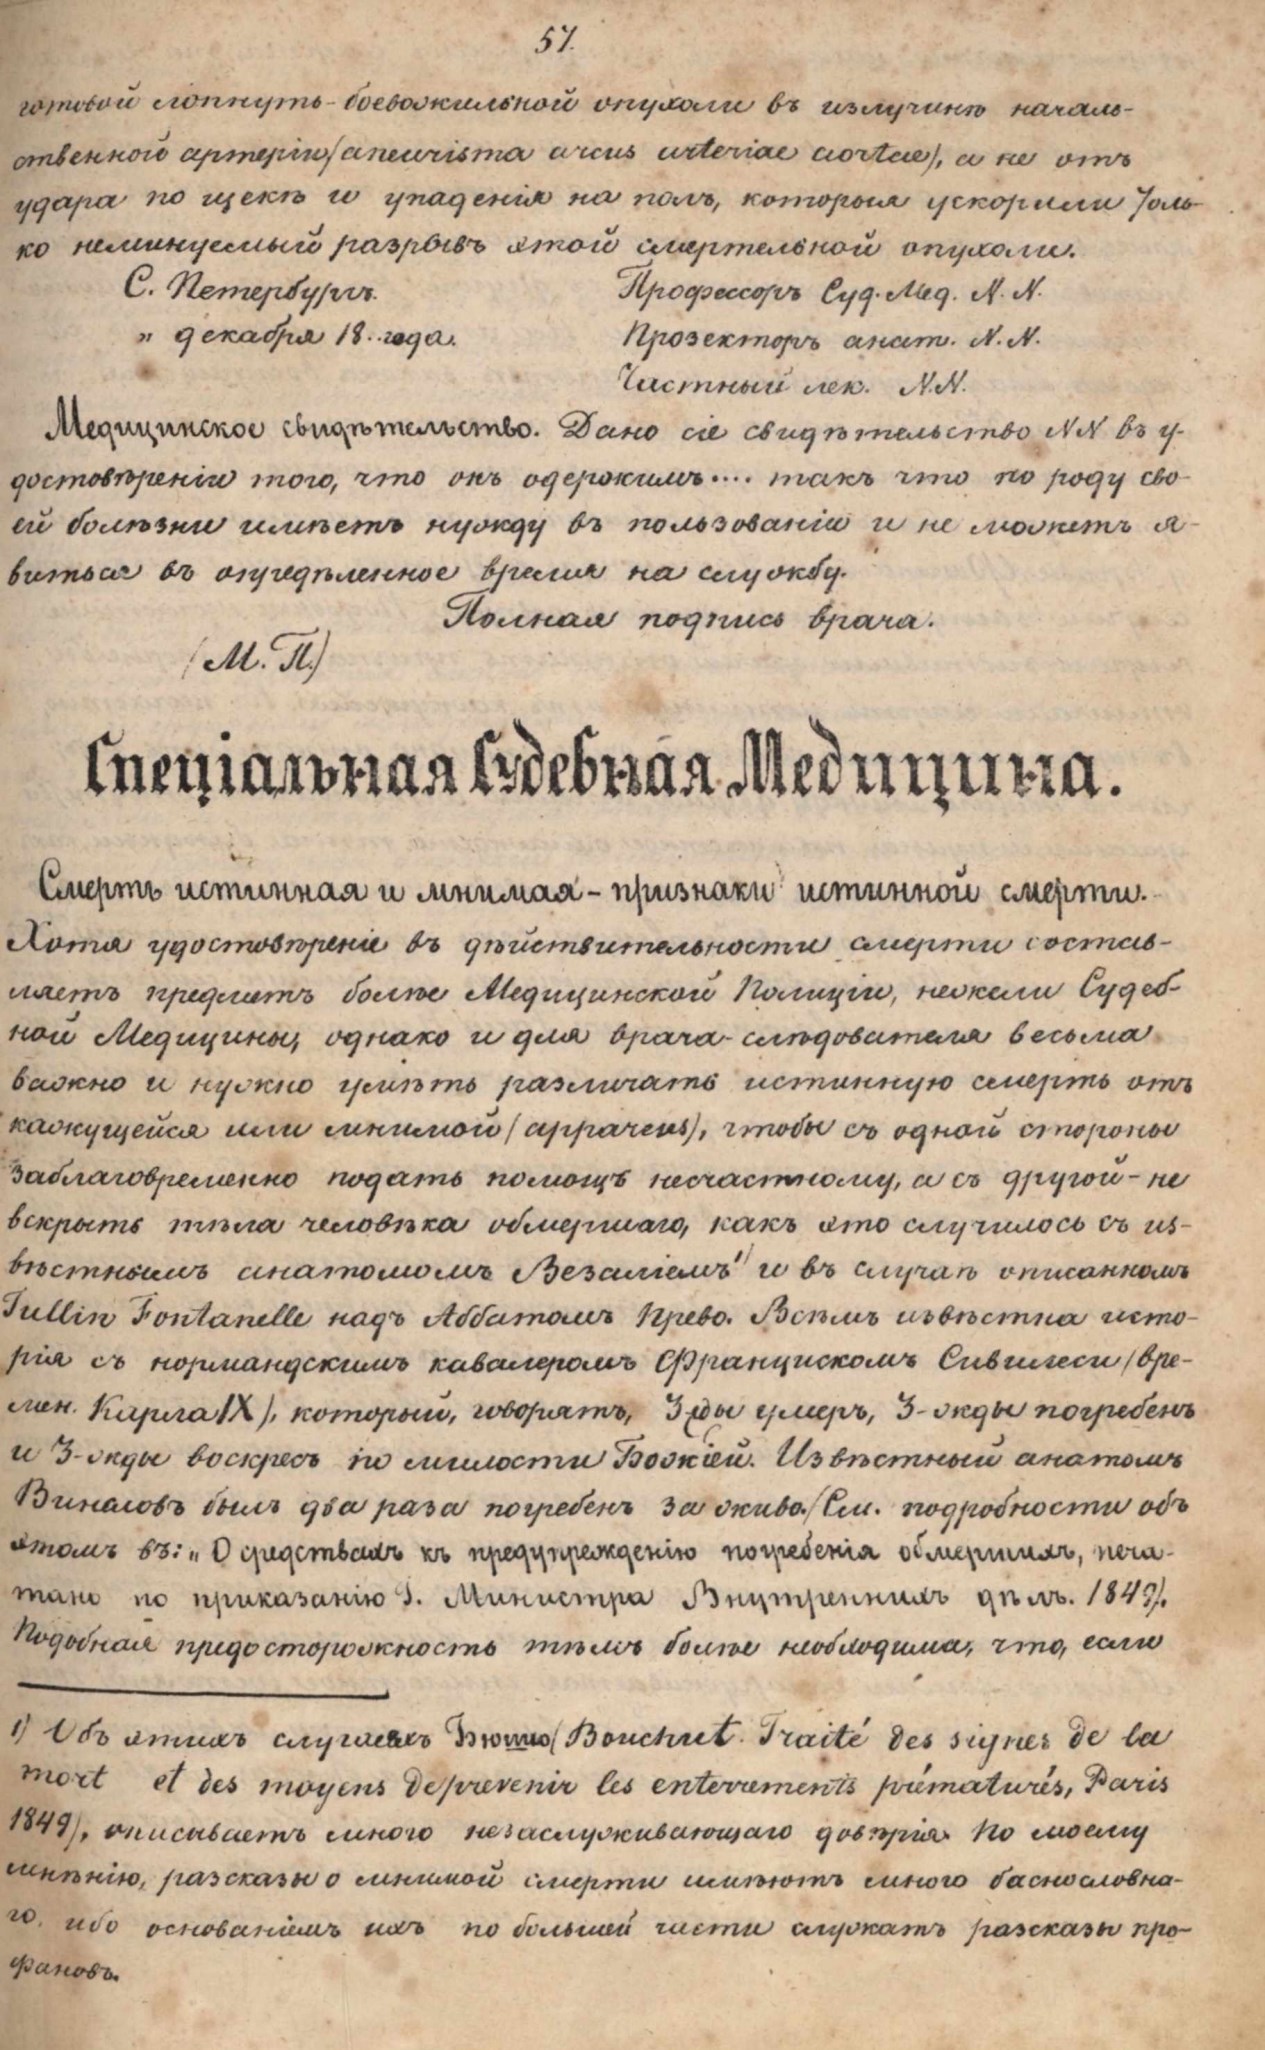 57.
готовой лопнуть боевожильной опухоли въ излучинѣ началь-
ственной артеріи (aneurisma arcus arteriae aortae), а не отъ
удара по щекѣ и упаденія на полъ, которыя ускорили толь-
ко неминуемый разрывъ этой смертельной опухоли.
С. Петербургъ. Профессоръ Суд. Мед. N. N.
„ декабря 18.. года. Прозекторъ анат. N. N.
Частный лек. N. N.
Медицинское свидѣтельство. Дано сіе свидѣтельство NN въ у-
достовѣреніи того, что онъ одержимъ.... такъ что по роду сво-
ей болѣзни имѣетъ нужду въ пользованіи и не можетъ я-
виться въ опредѣленное время на службу.
Полная подпись врача.
(М. П.)
Спеціальная Судебная Медицина.
Смерть истинная и мнимая – признаки истинной смерти.
Хотя удостовѣреніе въ дѣйствительности смерти состав-
ляетъ предметъ болѣе Медицинской Полиціи, нежели Судеб-
ной Медицины, однако и для врача-слѣдователя весьма
важно и нужно умѣть различать истинную смерть отъ
кажущейся или мнимой (apparens), чтобы съ одной стороны
заблаговременно подать помощь несчастному, а съ другой – не
вскрыть тѣла человѣка обмершаго, какъ это случилось съ из-
вѣстнымъ анатомомъ Везаліемъ 1) и въ случаѣ описанномъ
Tullin Fontanelle надъ Аббатомъ Прево. Всѣмъ извѣстна исто-
рія съ нормандскимъ кавалеромъ Францискомъ Сивилеси (вре-
мен. Карла IX), который, говорятъ, 3жды умеръ, 3-жды погребенъ
и 3-жды воскресъ по милости Божіей. Извѣстный анатомъ
Винсловъ былъ два раза погребенъ за живо. (См. подробности объ
этомъ въ: „О средствахъ къ предупрежденію погребенія обмершихъ, печа-
тано по приказанію Г. Министра Внутреннихъ дѣлъ. 1849).
Подобная предосторожность тѣмъ болѣе необходима, что, если
1) Объ этихъ случаяхъ Бюшю (Bouchut. Traité des signes de la
mort et des moyens de prevenir les enterrements prématurés, Paris
1849), описываетъ много незаслуживающаго довѣрія. По моему
мнѣнію, разсказы о мнимой смерти имѣютъ много баснословна-
го, ибо основаніемъ ихъ по большей части служатъ разсказы про-
фановъ.